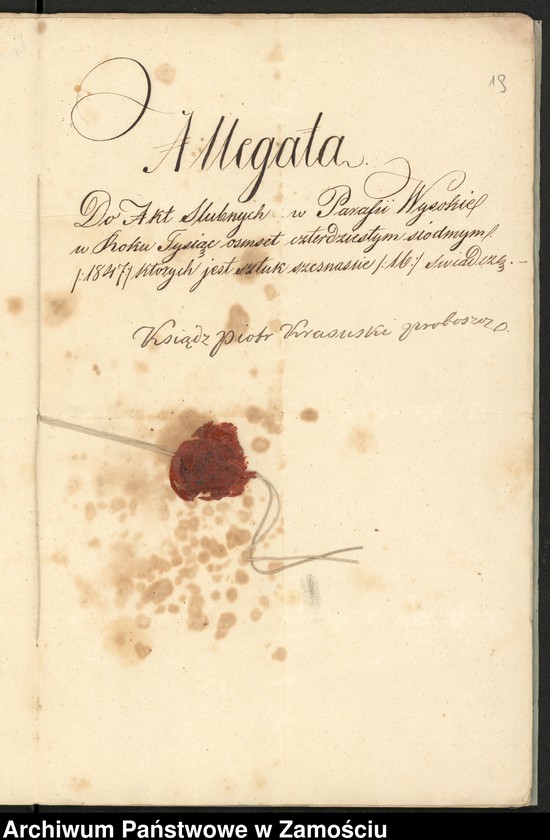 19
Allegata
Do Akt Slubnych w Parafii Wysokie
w Roku Tysiąc osmset czterdziestym siodmym
/:1847/ których jest sztuk szesnaście /:16:/ swiadczę. -
Ksiądz Piotr Krasuski proboszcz.
Archiwum Państwowe w Zamościu